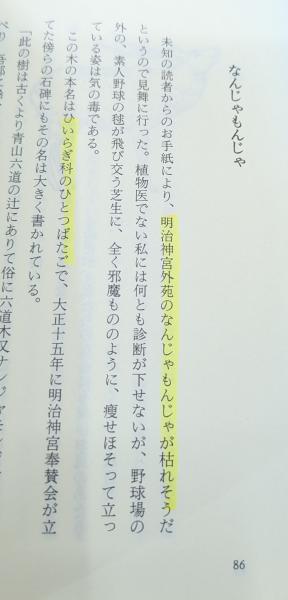 なんじゃもんじゃ
未知の読者からのお手紙により、明治神宮外苑のなんじゃもんじゃが枯れそうだ
というので見舞に行った。植物医でない私には何とも診断が下せないが、野球場の
外の、素人野球の毬が飛び交う芝生に、全く邪魔もののように、瘦せほそって立っ
ている姿は気の毒である。
この木の本名はひいらぎ科のひとつばたごで、大正十五年に明治神宮奉賛会が立
てた傍らの石碑にもその名は大きく書かれている。
「此の樹は古くより青山六道の辻にありて俗に六道木又ナンジャモンジャ
86